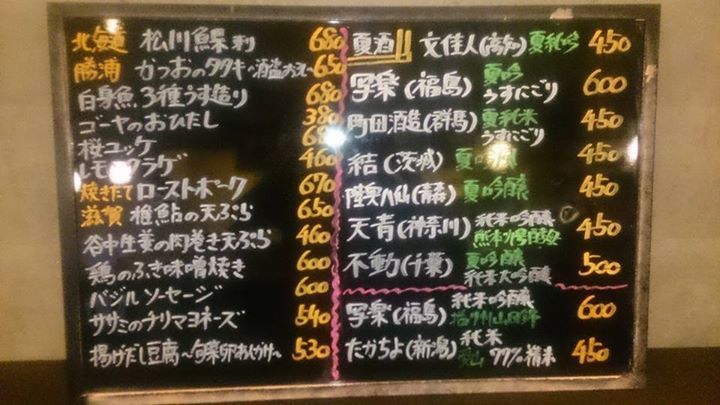 北海道 松川鰈刺 680
勝浦 かつおのタタキ 〜酒盗おろし〜 650
白身魚3種うす造り 680
ゴーヤのおひたし 380
桜ユッケ
レモンクラゲ 460
焼きたて ローストポーク 670
滋賀 稚鮎の天ぷら 650
谷中生姜の肉巻き天ぷら 460
鶏のふき味噌焼き 600
バジルソーセージ 600
ササミのナリマヨネーズ 540
揚げだし豆腐〜旬菜卵あんかけ〜 530
夏酒!! 文佳人(高知) 夏純吟 450
写楽(福島) 夏吟 うすにごり 600
町田酒造(群馬) 夏純米 うすにごり 450
結(茨城) 夏吟醸 450
陸奥八仙(青森) 夏吟醸 450
天青(神奈川) 純米吟醸 450
不動(千葉) 夏吟醸 純米大吟醸 500
写楽(福島) 純米吟醸 播州山田錦 600
たかちよ(新潟) 純米 77%精米 450